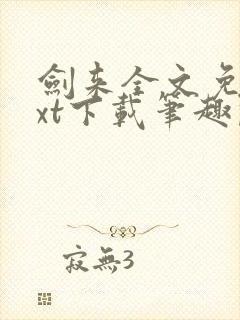 劍来全文免
xt下載筆趣
寂無3